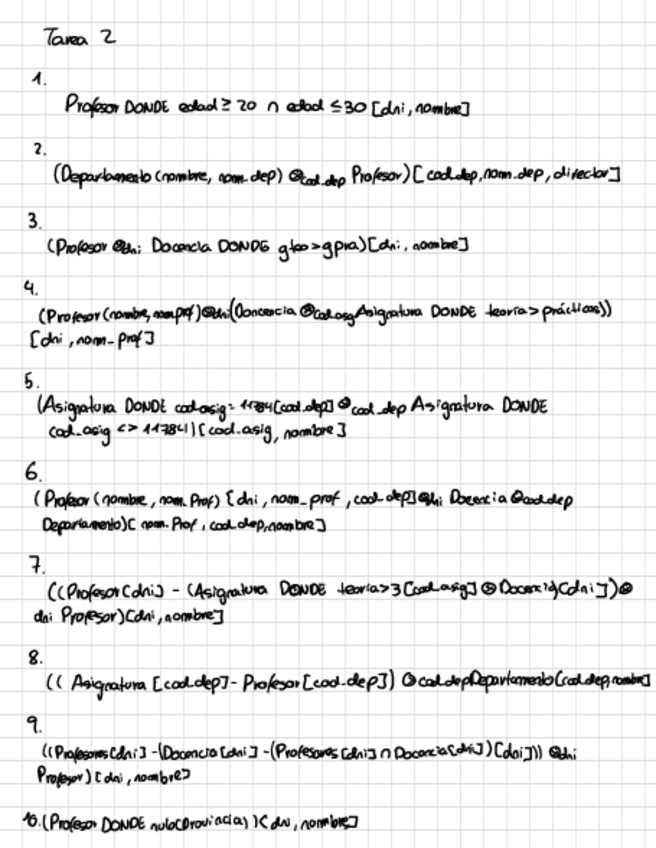 Tarea 2
1.
Profesor DONDE edad ≥ 20 ∩ edad ≤ 30 [dni, nombre]
2.
(Departamento (nombre, nom.dep) ⊗cod.dep Profesor) [cod.dep, nom.dep, director]
3.
(Profesor ⊗dni Docencia DONDE gteo > gpra) [dni, nombre]
4.
(Profesor (nombre, nomprf) ⊗dni (Doncencia ⊗cod.asg Asignatura DONDE teoría > prácticas))
[dni, nom_prof]
5.
(Asignatura DONDE cod.asig = 11784 [cod.dep] ⊗cod_dep Asignatura DONDE
cod_asig <> 11784) [cod.asig, nombre]
6.
(Profesor (nombre, nom.Prof) [dni, nom_prof, cod.dep] ⊗dni Docencia ⊗cod.dep
Departamento) [nom.Prof, cod.dep, nombre]
7.
((Profesor [dni] - (Asignatura DONDE teoría > 3 [cod.asig] ⊗ Docencia) [dni]) ⊗
dni Profesor) [dni, nombre]
8.
(( Asignatura [cod.dep] - Profesor [cod-dep]) ⊗cod.dep Departamento [cod.dep, nombre]
9.
((Profesores [dni] - (Docencia [dni] - (Profesores [dni] ∩ Docencia [dni]) [dni])) ⊗dni
Profesor) [dni, nombre]
10. (Profesor DONDE nulo(Provincia)) [dni, nombre]